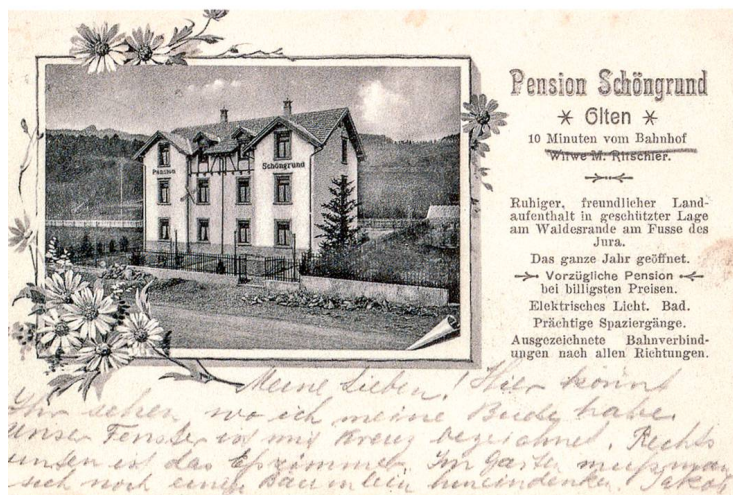 Pension Schöngrund
Pension
Schöngrund
* Olten *
10 Minuten vom Bahnhof
Witwe M. Ritschler.
Ruhiger, freundlicher Land-
aufenthalt in geschützter Lage
am Waldesrande am Fusse des
Jura.
Das ganze Jahr geöffnet.
Vorzügliche Pension
bei billigsten Preisen.
Elektrisches Licht. Bad.
Prächtige Spaziergänge.
Ausgezeichnete Bahnverbind-
ungen nach allen Richtungen.
Meine Lieben! Hier könnt
Ihr sehen, wo ich meine Bude habe.
Unser Fenster ist mit Kreuz bezeichnet. Rechts
unten ist das Esszimmer. Im Garten muss man
sich noch einen hineindenken. Jakob